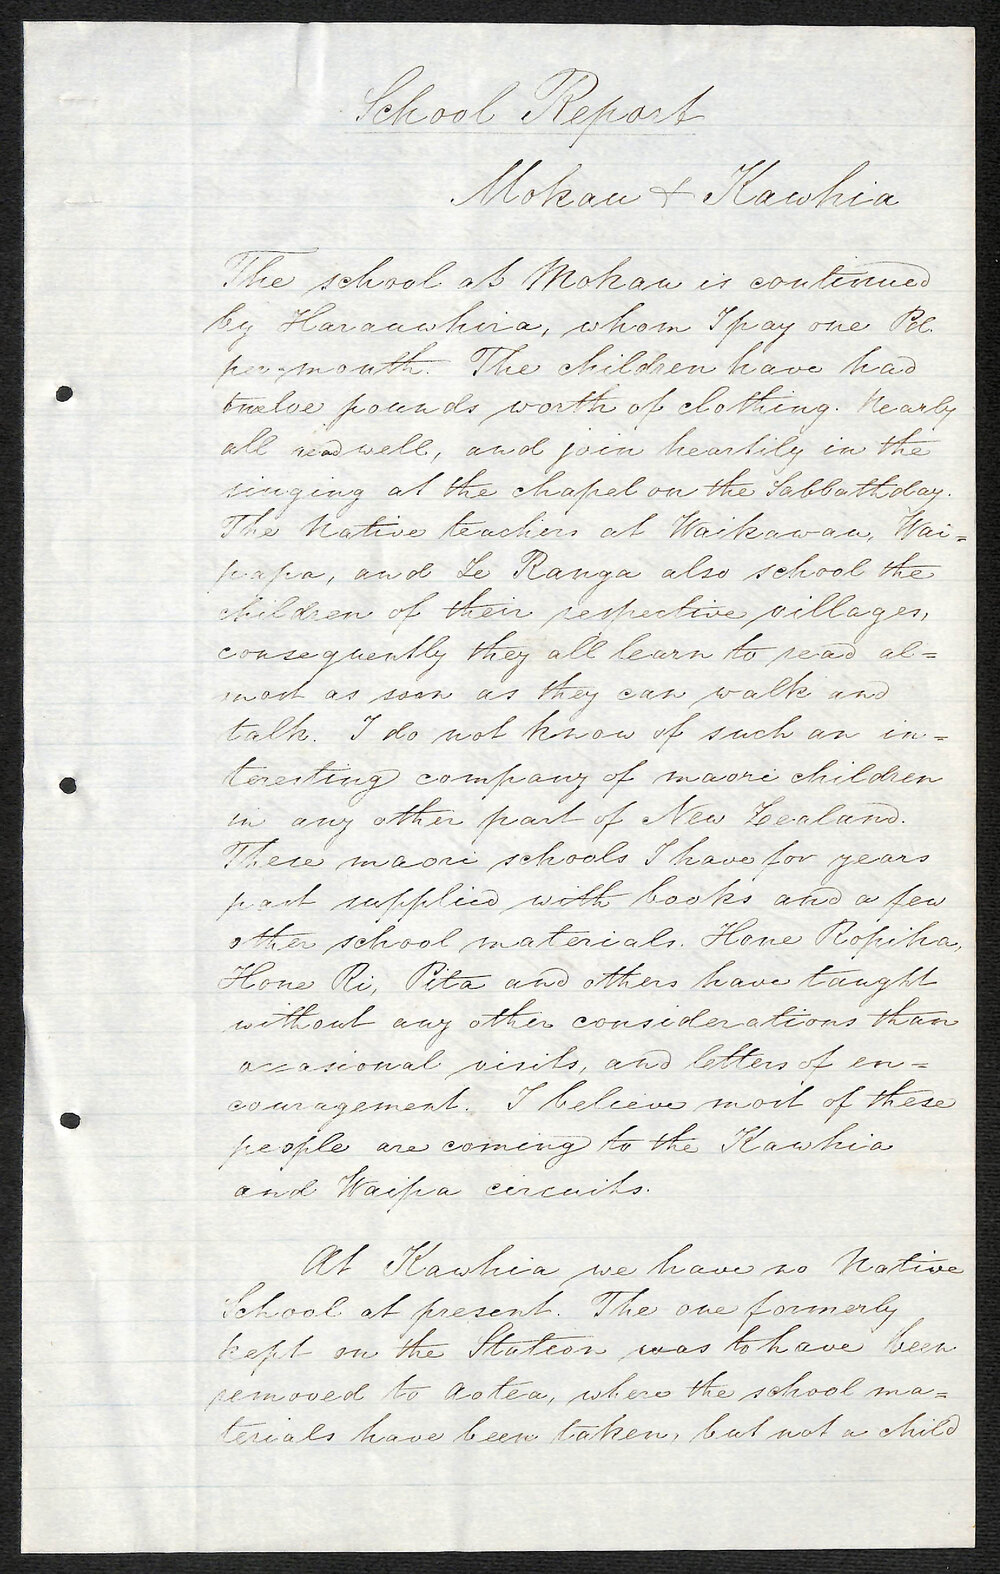 School Report
Mokau & Kawhia
The school at Mokau is continued
by Harauwhira, whom I pay one Pd.
per month. The children have had
twelve pounds worth of clothing. Nearly
all read well, and join heartily in the
singing at the chapel on the Sabbath day.
The Native teachers at Waikawau, Wai=
papa, and Te Ranga also school the
children of their respective villages,
consequently they all learn to read al=
most as soon as they can walk and
talk. I do not know of such an in=
teresting company of maori children
in any other part of New Zealand.
These maori schools I have for years
past supplied with books and a few
other school materials. Hone Ropiha,
Hone Ri, Pita and others have taught
without any other considerations than
occasional visits, and letters of en=
couragement. I believe most of these
people are coming to the Kawhia
and Waipa circuits.
At Kawhia we have no Native
School at present. The one formerly
kept on the Station was to have been
removed to Aotea, where the school ma=
terials have been taken, but not a child